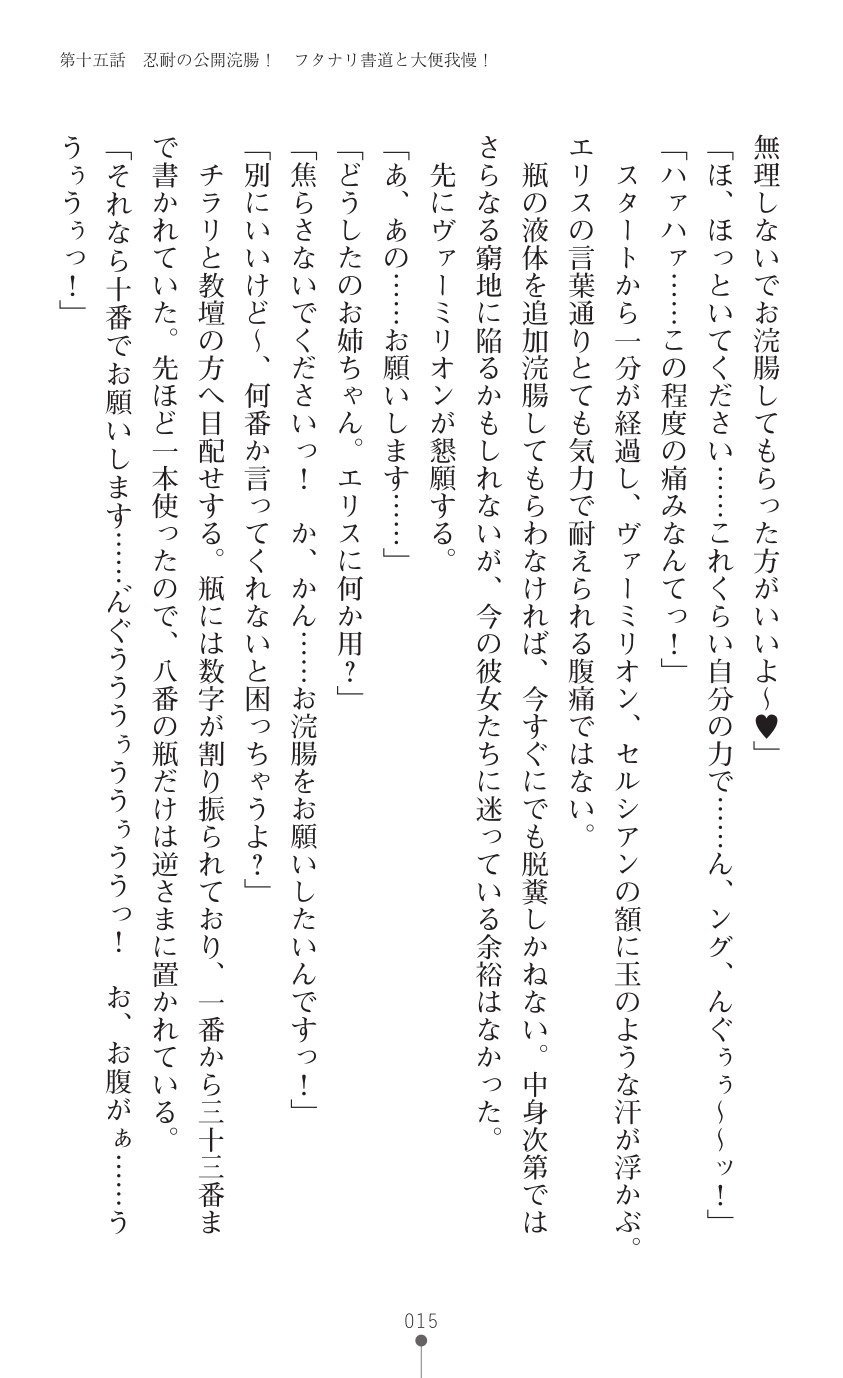 第十五話　忍耐の公開浣腸！　フタナリ書道と大便我慢！
無理しないでお浣腸してもらった方がいいよ～♥」
「ほ、ほっといてください……これくらい自分の力で……ん、ング、んぐぅぅ～～ッ！」
「ハァハァ……この程度の痛みなんてっ！」
　スタートから一分が経過し、ヴァーミリオン、セルシアンの額に玉のような汗が浮かぶ。
エリスの言葉通りとても気力で耐えられる腹痛ではない。
　瓶の液体を追加浣腸してもらわなければ、今すぐにでも脱糞しかねない。中身次第では
さらなる窮地に陥るかもしれないが、今の彼女たちに迷っている余裕はなかった。
　先にヴァーミリオンが懇願する。
「あ、あの……お願いします……」
「どうしたのお姉ちゃん。エリスに何か用？」
「焦らさないでくださいっ！　か、かん……お浣腸をお願いしたいんですっ！」
「別にいいけど～、何番か言ってくれないと困っちゃうよ？」
　チラリと教壇の方へ目配せする。瓶には数字が割り振られており、一番から三十三番ま
で書かれていた。先ほど一本使ったので、八番の瓶だけは逆さまに置かれている。
「それなら十番でお願いします……ん゛ぐうううぅううぅううっ！　お、お腹がぁ……う
うぅうぅっ！」
015